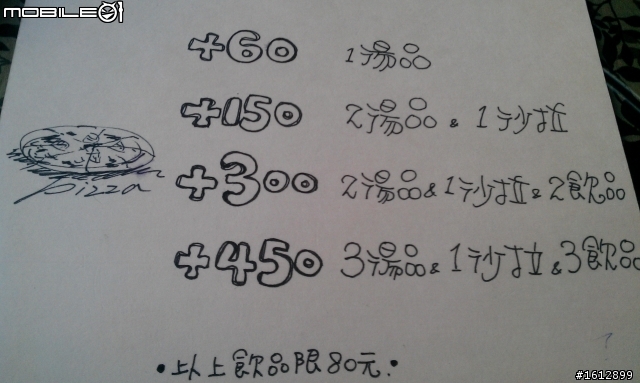 MOBILE01
+60 1湯品
+150 2湯品 & 1沙拉
+300 2湯品&1沙拉&2飲品
pizza
+450 3湯品&1沙拉&3飲品
•以上飲品限80元.•
?
#1612899